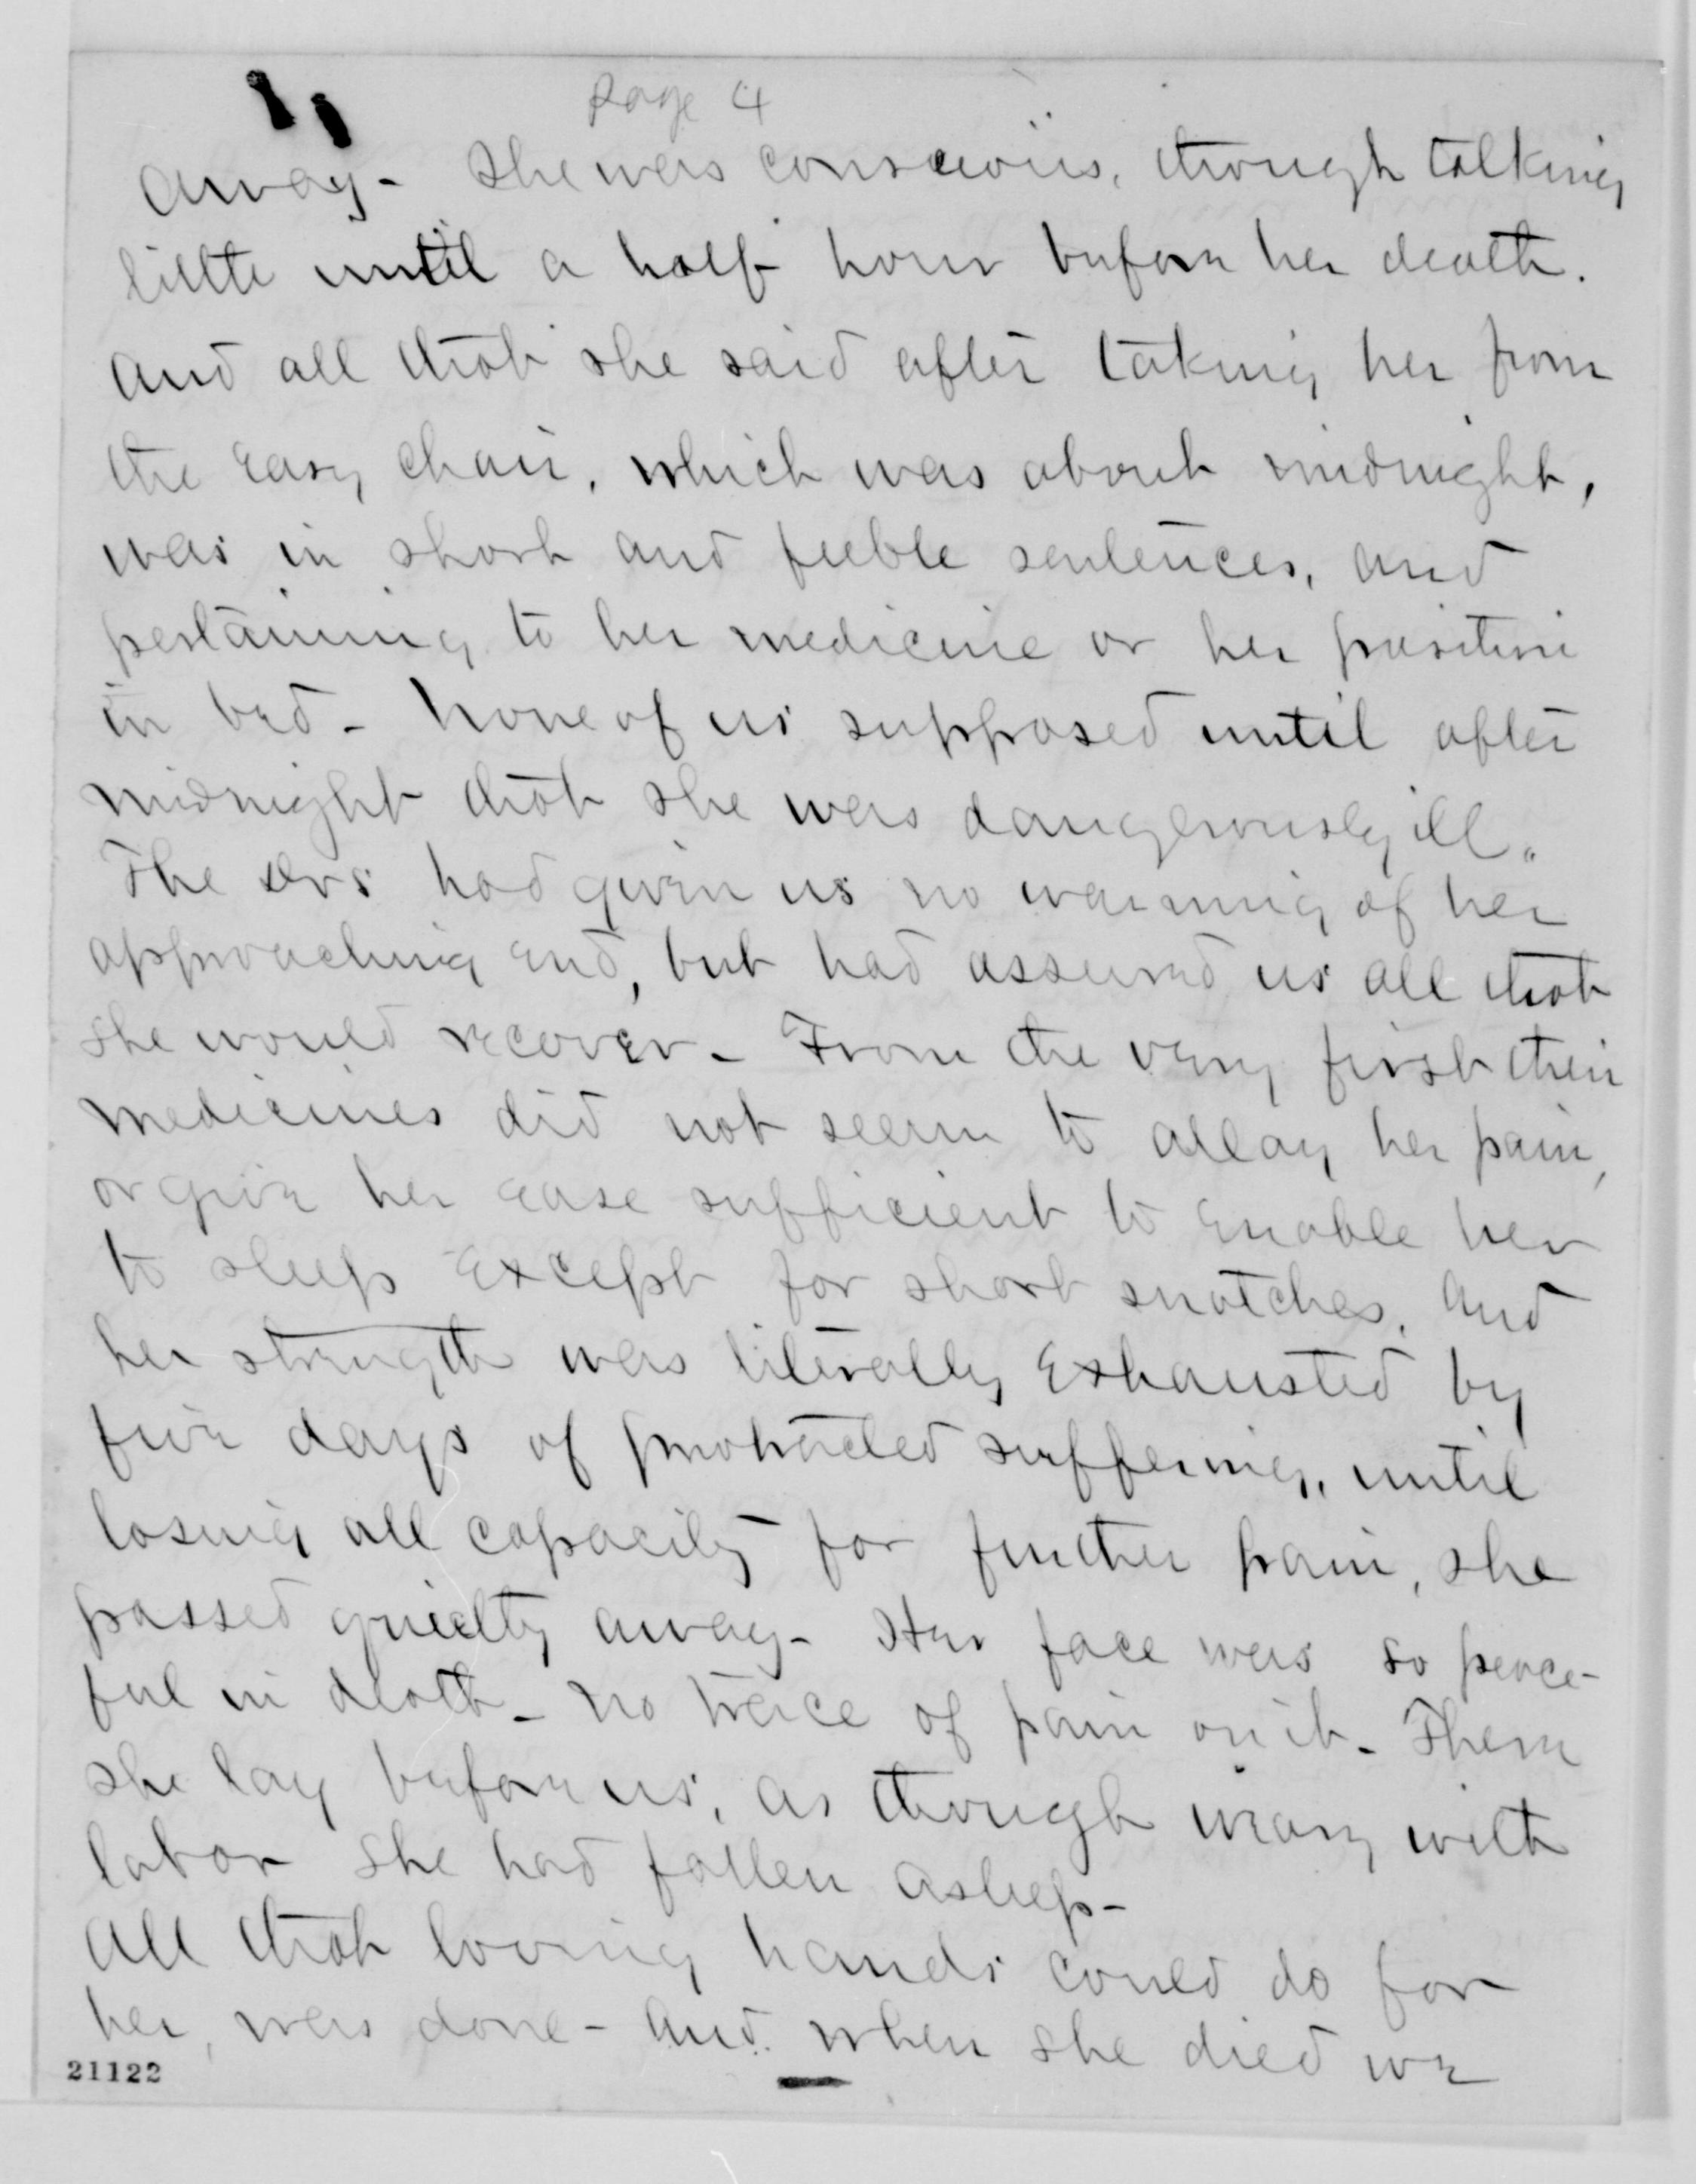 Page 4
away - She was conscious, though talking
little until a half hour before her death.
And all that she said after taking her from
the easy chair, which was about midnight,
was in short and feeble sentences, and
pertaining to her medicine or her position
in bed - None of us supposed until after
midnight that she was dangerously ill.
The Drs had given us no warning of her
approaching end, but had assured us all that
she would recover - From the very first their
medicines did not seem to allay her pain,
or give her ease sufficient to enable her
to sleep except for short snatches, and
her strength was literally exhausted by
five days of protracted suffering, until
losing all capacity for further pain, she
passed quietly away - Her face was so peace-
ful in death - no trace of pain on it - There
she lay before us, as though weary with
labor she had fallen asleep -
All that loving hands could do for
her, was done - And when she died we
21122